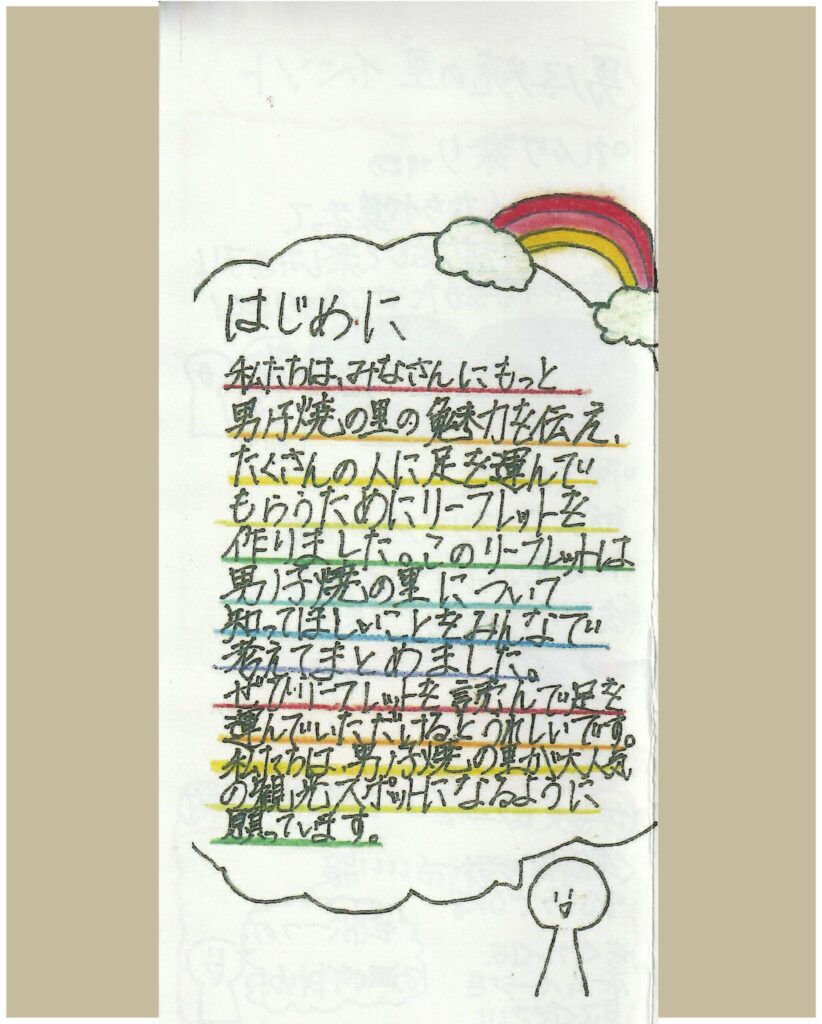 はじめに
私たちは、みなさんにもっと
男ノ子焼の里の魅力を伝え、
たくさんの人に足を運んで
もらうためにリーフレットを
作りました。このリーフレットは
男ノ子焼の里について
知ってほしいことをみんなで
考えてまとめました。
ぜひリーフレットを読んで足を
運んでいただけるとうれしいです。
私たちは、男ノ子焼の里が大人気
の観光スポットになるように
願っています。